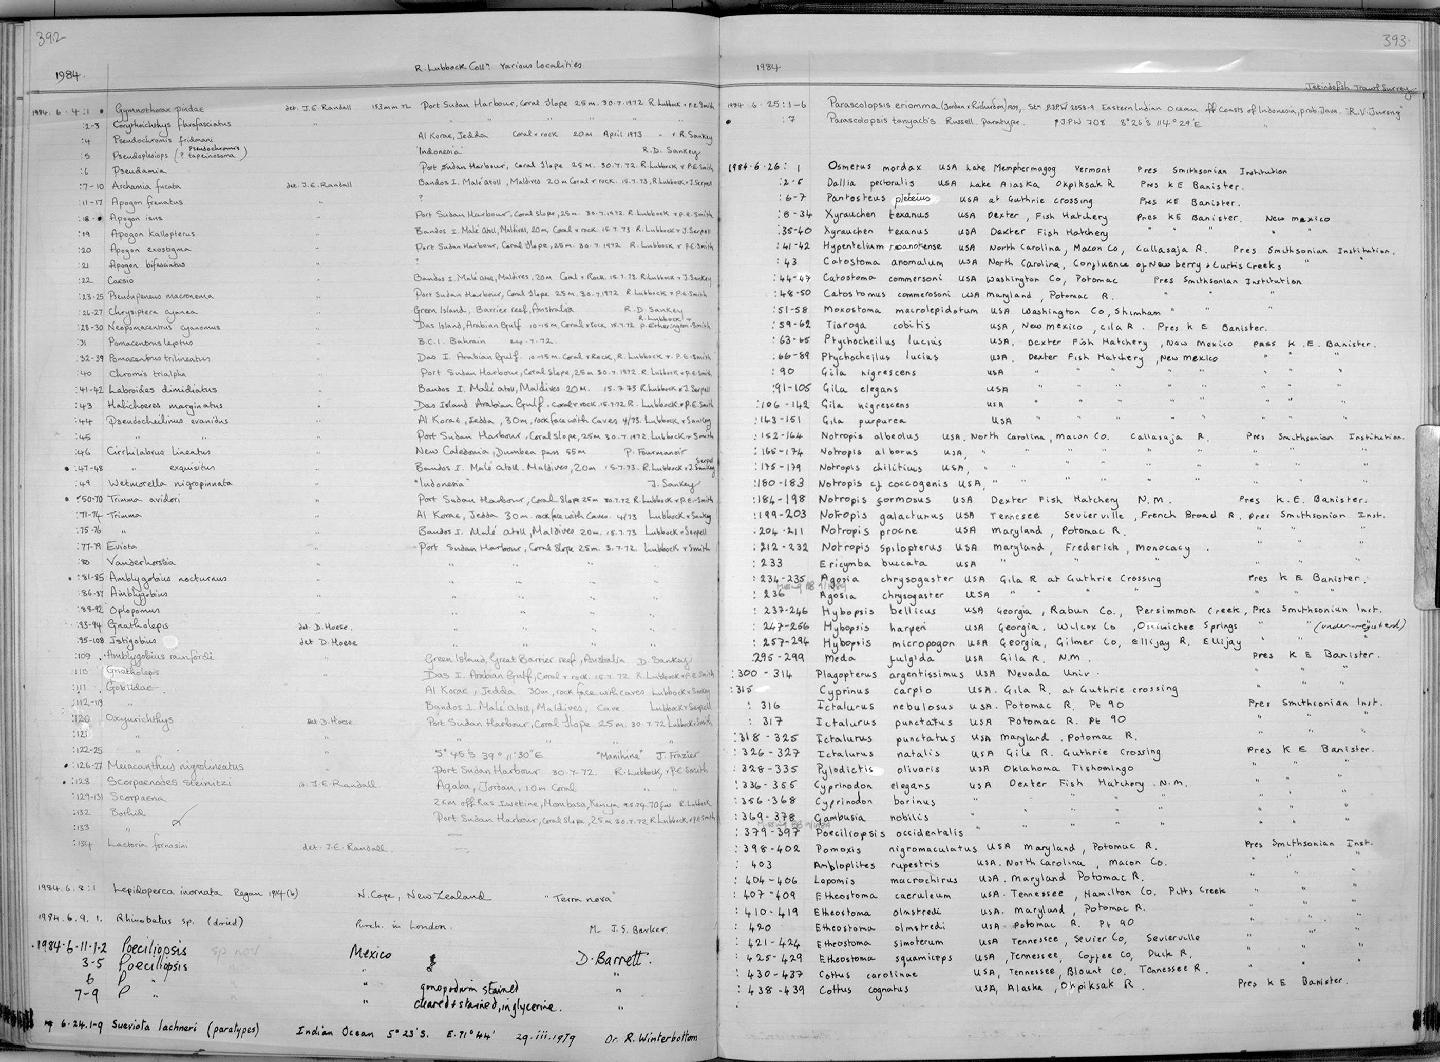 392
1984.
R. Lubbock Colln. Various localities
1984.6.4:1 • Gymnothorax pindae det. J.E. Randall 153mm TL Port Sudan Harbour, Coral Slope 25m. 30.7.1972 R. Lubbock & P.E. Smith
:2-3 Corythoichthys flavofasciatus " " " " "
:4 Pseudochromis fridmani Al Korae, Jedda Coral & rock 20m April 1973 " & R. Sankey
:5 Pseudoplesiops (? Pseudochromis tapeinosoma) "Indonesia" R.D. Sankey
:6 Pseudamia Port Sudan Harbour, Coral Slope, 25m. 30.7.72. R. Lubbock & P.E. Smith
:7-10 Archamia fucata det. J.E. Randall Bandos I. Malé atoll, Maldives 20m Coral & rock. 15.7.73, R. Lubbock & J. Serpell
:11-17 Apogon frenatus " ?
:18 • Apogon isus " Port Sudan Harbour, Coral Slope, 25m 30.7.1972 R. Lubbock & P.E. Smith
:19 Apogon kallopterus " Bandos I. Malé Atoll, Maldives, 20m 15.7.73 R. Lubbock & J. Serpell
:20 Apogon exostigma " Port Sudan Harbour, Coral Slope, 25m. 30.7.1972 R. Lubbock & P.E. Smith
:21 Apogon bifasciatus " ?
:22 Caesio Bandos I. Malé atoll, Maldives, 20m Coral & Rock. 15.7.73. R. Lubbock & J. Sankey
:23-25 Pseudupeneus macronema " Port Sudan Harbour, Coral Slope 25m. 30.7.1972 R. Lubbock & P.E. Smith
:26-27 Chrysiptera cyanea " Green Island, Barrier reef, Australia R.D. Sankey
:28-30 Neopomacentrus cyanomus " Das Island, Arabian Gulf 10-15m. Coral & rock, 15.7.72 R. Lubbock & P. Etherington-Smith
:31 Pomacentrus leptus " B.C.I. Bahrain 24.7.72.
:32-39 Pomacentrus trilineatus " Das I. Arabian Gulf. 10-15m. Coral & Rock, R. Lubbock & P.E. Smith
:40 Chromis trialpha " Port Sudan Harbour, Coral Slope, 25m 30.7.1972 R. Lubbock & P.E. Smith
:41-42 Labroides dimidiatus " Bandos I. Malé atoll, Maldives 20m. 15.7.73 R. Lubbock & J. Serpell
:43 Halichoeres marginatus " Das Island Arabian Gulf. Coral & rock. 15.7.72 R. Lubbock & P.E. Smith
:44 Pseudocheilinus evanidus " Al Korae, Jedda, 30m, rock face with caves 4/73. Lubbock & Sankey
:45 " " " Port Sudan Harbour, Coral Slope, 25m 30.7.1972. Lubbock & Smith
:46 Cirrhilabrus lineatus " New Caledonia, Dumbea pass 55m P. Fourmanoir
• :47-48 " exquisitus " Bandos I. Malé atoll, Maldives, 20m 15.7.73. R. Lubbock & J. Serpell
:49 Wetmorella nigropinnata " "Indonesia" J. Sankey
• :50-70 Trimma avidori " Port Sudan Harbour, Coral Slope 25m 30.7.72 R. Lubbock & P.E. Smith
:71-74 Trimma " Al Korae, Jedda 30m. rock face with Caves. 4/73 Lubbock & Sankey
:75-76 " " Bandos I. Malé atoll, Maldives 20m. 15.7.73 Lubbock & Serpell
:77-79 Eviota " Port Sudan Harbour, Coral Slope 25m. 3.7.72. Lubbock & Smith
:80 Vanderhorstia " " " " "
• :81-85 Amblygobius nocturnus " " " " "
:86-87 Amblygobius " " " " "
:88-92 Oplopomus " " " " "
:93-94 Gnatholepis det. D. Hoese. " " " "
:95-108 Istigobius det D. Hoese " " " "
:109 • Amblygobius rainfordi Green Island, Great Barrier reef, Australia D. Sankey
:110 Gnatholepis " Das I. Arabian Gulf, Coral & rock. 15.7.72 R. Lubbock & P.E. Smith
:111 Gobiidae Al Korae, Jedda 30m, rock face with caves Lubbock & Sankey
:112-119 " Bandos I. Malé atoll, Maldives, Cave Lubbock & Serpell
:120 Oxyurichthys det D. Hoese Port Sudan Harbour, Coral Slope, 25m. 30.7.72 Lubbock & Smith
:121 " " " " " "
:122-25 " 5°45'S 39°11'30"E "Manihine" J. Frazier
• :126-27 Meiacanthus nigrolineatus " Port Sudan Harbour 30.7.72. R. Lubbock, & P.E. Smith
• :128 Scorpaenodes steinitzi J.E. Randall Aqaba, Jordan, 10m Coral " "
:129-131 Scorpaena 2km off Ras Iwetine, Mombasa, Kenya R. Lubbock
:132 Bothid Port Sudan Harbour, Coral Slope, 25m 30.7.72 R. Lubbock & P.E. Smith
:133 "
:134 Lactoria fornasini det. J.E. Randall.
1984.6.8:1 Lepidoperca inornata Regan 1914 (b) N. Cape, New Zealand "Terra nova"
1984.6.9.1. Rhinobatus sp. (dried) Purch. in London. Mr J.S. Barker.
1984.6.11.1-2 Poeciliopsis sp nov Mexico D. Barrett.
3-5 Poeciliopsis " "
6 P " " gonopodium stained "
7-9 P " " cleared & stained, in glycerine. "
6.24.1-9 Sueviota lachneri (paratypes) Indian Ocean 5°23'S. E.71°44' 29.iii.1979 Dr. R. Winterbottom
393.
1984
Jetindofish Trawl Survey
1984.6.25:1-6 Parascolopsis eriomma (Jordan & Richardson) 1909, Stn BJPW 2058-9 Eastern Indian Ocean off coasts of Indonesia, prob. Java. "R.V. Jurong"
• :7 Parascolopsis tanyactis Russell. Paratype. PJPW 708 8°26'S 114°29'E "
1984.6.26: 1 Osmerus mordax USA Lake Memphermagog Vermont Pres Smithsonian Institution
:2-5 Dallia pectoralis USA Lake Alaska Okpiksak R Pres K E Banister.
:6-7 Pantosteus plebeius USA at Guthrie crossing Pres K E Banister.
:8-34 Xyrauchen texanus USA Dexter, Fish Hatchery Pres K E Banister. New Mexico
:35-40 Xyrauchen texanus USA Dexter Fish Hatchery " " " "
:41-42 Hypentelium roanokense USA North Carolina, Macon Co, Cullasaja R. Pres Smithsonian Institution.
:43 Catostoma anomalum USA North Carolina, Confluence of Newberry & Curtis Creeks " "
:44-47 Catostoma commersoni USA Washington Co, Potomac Pres Smithsonian Institution
:48-50 Catostomus commersoni USA Maryland, Potomac R. " " "
:51-58 Moxostoma macrolepidotum USA Washington Co, Shimham " " " "
:59-62 Tiaroga cobitis USA, New Mexico, Gila R. Pres K E Banister.
:63-65 Ptychocheilus lucius USA. Dexter Fish Hatchery, New Mexico Pres K.E. Banister.
:66-89 Ptychocheilus lucius USA, Dexter Fish Hatchery, New Mexico " " "
:90 Gila nigrescens USA " " " " " "
:91-105 Gila elegans USA " " " " " "
:106-142 Gila nigrescens USA " " " " " "
:143-151 Gila purpurea USA " " " " " "
:152-164 Notropis albeolus USA. North Carolina, Macon Co. Cullasaja R. Pres Smithsonian Institution.
:165-174 Notropis alborus USA, " " " " " " "
:175-179 Notropis chiliticus USA, " " " " " " "
:180-183 Notropis cf coccogenis USA, " " " " " " "
:184-198 Notropis formosus USA Dexter Fish Hatchery N.M. Pres K.E. Banister.
:199-203 Notropis galacturus USA Tennesee Sevierville, French Broad R. Pres Smithsonian Inst.
:204-211 Notropis procne USA Maryland, Potomac R. " " "
:212-232 Notropis spilopterus USA Maryland, Frederick, Monocacy. " " "
:233 Ericymba buccata USA " " " " " "
:234-235 Agosia chrysogaster USA Gila R at Guthrie Crossing Pres K E Banister.
:236 Agosia chrysogaster USA " " " " " " "
:237-246 Hybopsis bellicus USA Georgia, Rabun Co., Persimmon Creek, Pres Smithsonian Inst.
:247-256 Hybopsis harperi USA Georgia. Wilcox Co, Osewichee Springs " " (under-rejistered)
:257-294 Hybopsis micropogon USA Georgia, Gilmer Co, Ellijay R, Ellijay " " "
:295-299 Meda fulgida USA Gila R. N.M. Pres K E Banister.
:300-314 Plagopterus argentissimus USA Nevada Univ. " " "
:315 Cyprinus carpio USA. Gila R. at Guthrie crossing " " "
:316 Ictalurus nebulosus USA. Potomac R. Pt 90 Pres Smithsonian Inst.
:317 Ictalurus punctatus USA Potomac R. Pt 90 " " "
:318-325 Ictalurus punctatus USA Maryland. Potomac R. " " "
:326-327 Ictalurus natalis USA Gile R. Guthrie Crossing Pres K E Banister.
:328-335 Pylodictis olivaris USA Oklahoma Tishomingo " " "
:336-355 Cyprinodon elegans USA Dexter Fish Hatchery. N.M. " " "
:356-368 Cyprinodon borinus " " " " " " "
:369-378 Gambusia nobilis " " " " " " "
:379-397 Poeciliopsis occidentalis " " " " " " "
:398-402 Pomoxis nigromaculatus USA Maryland, Potomac R. Pres Smithsonian Inst.
:403 Ambloplites rupestris USA. North Carolina, Macon Co. " " "
:404-406 Lepomis macrochirus USA. Maryland Potomac R. " " "
:407-409 Etheostoma caeruleum USA. Tennessee, Hamilton Co. Pitts Creek " " "
:410-419 Etheostoma olmstredi USA. Maryland, Potomac R. " " "
:420 Etheostoma olmstredi USA. Potomac R. Pt 90 " " "
:421-424 Etheostoma simoterum USA Tennessee, Sevier Co, Sevierville " " "
:425-429 Etheostoma squamiceps USA, Tennessee, Coffee Co, Duck R. " " "
:430-437 Cottus carolinae USA, Tennessee, Blount Co. Tennessee R. " " "
:438-439 Cottus cognatus USA, Alaska, Okpiksak R. Pres K E Banister.